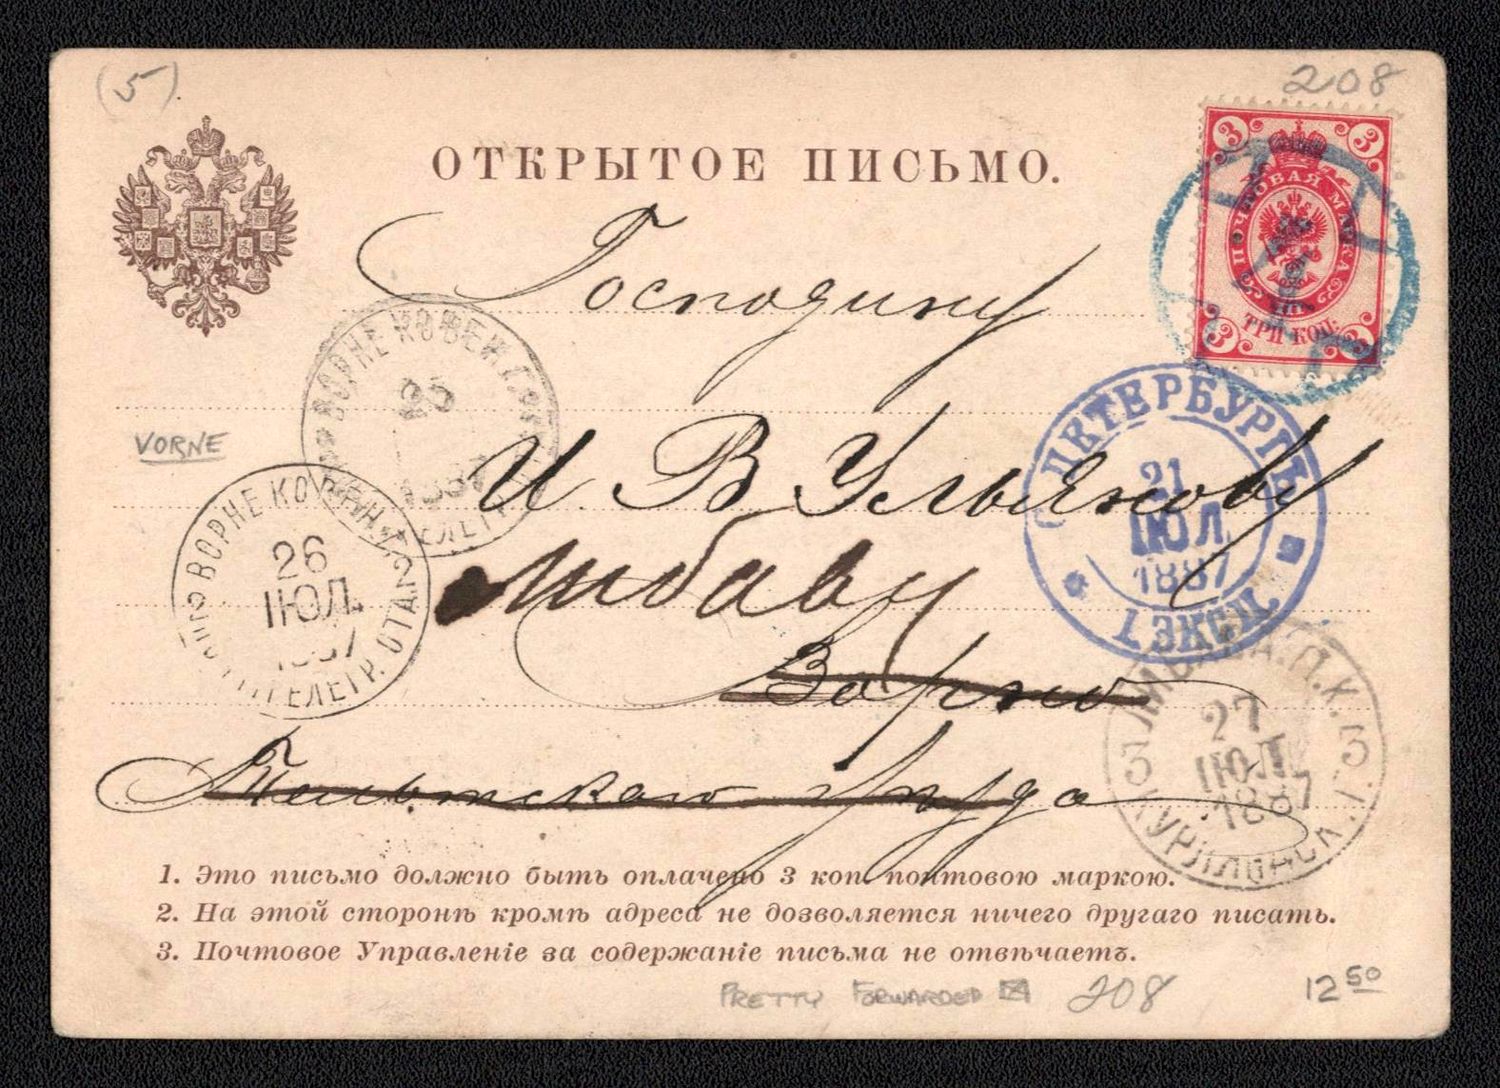 (5)
208
ОТКРЫТОЕ ПИСЬМО.
3 3
ПОЧТОВАЯ МАРКА
ТРИ КОП:
3 3
Господину
ВОРНЕ КОВЕН. Г.
25
1887
VORNE
И В Ульянову
С ПЕТЕРБУРГЪ
21
ІЮЛ
1887
7 ЭКСП.
ВОРНЕ КОВЕН.
26
ІЮЛ.
1887
ТЕЛЕГР. ОТД.
Либаву
Ворно
ЛИБАВА.П.К.
27
ІЮЛ
1887
3 3
КУРЛЯНДСК. Г.
Тельшскаго уѣзда
1. Это письмо должно быть оплачено 3 коп. почтовою маркою.
2. На этой сторонѣ кромѣ адреса не дозволяется ничего другаго писать.
3. Почтовое Управленіе за содержаніе письма не отвѣчаетъ.
PRETTY FORWARDED 208 12 50